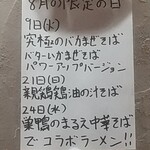 8月の限定の日
9日(火)
究極のバカまぜそば
バターいかまぜそば
パワーアップバージョン
21日(日)
親鶏鶏油の汁そば
24日(水)
巣鴨のまるえ中華そば
でコラボラーメン!!